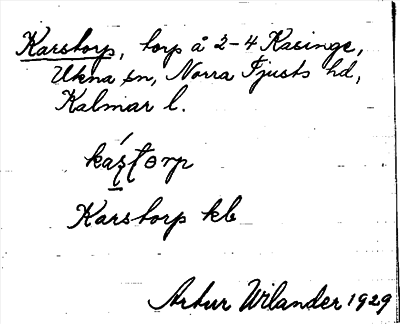 Karstorp, torp å 2-4 Kasinge,
Ukna sn, Norra Tjusts hd,
Kalmar l.
Karstorp kb
Artur Wilander 1929